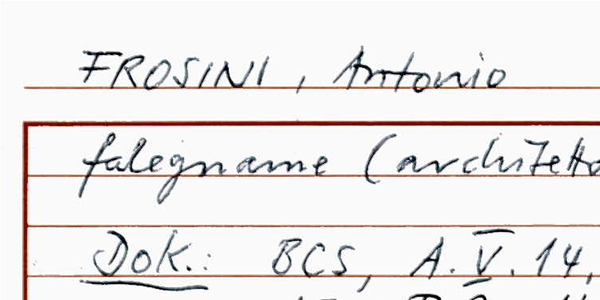 FROSINI, Antonio
falegname (architetto
Dok.: BCS, A.V.14,